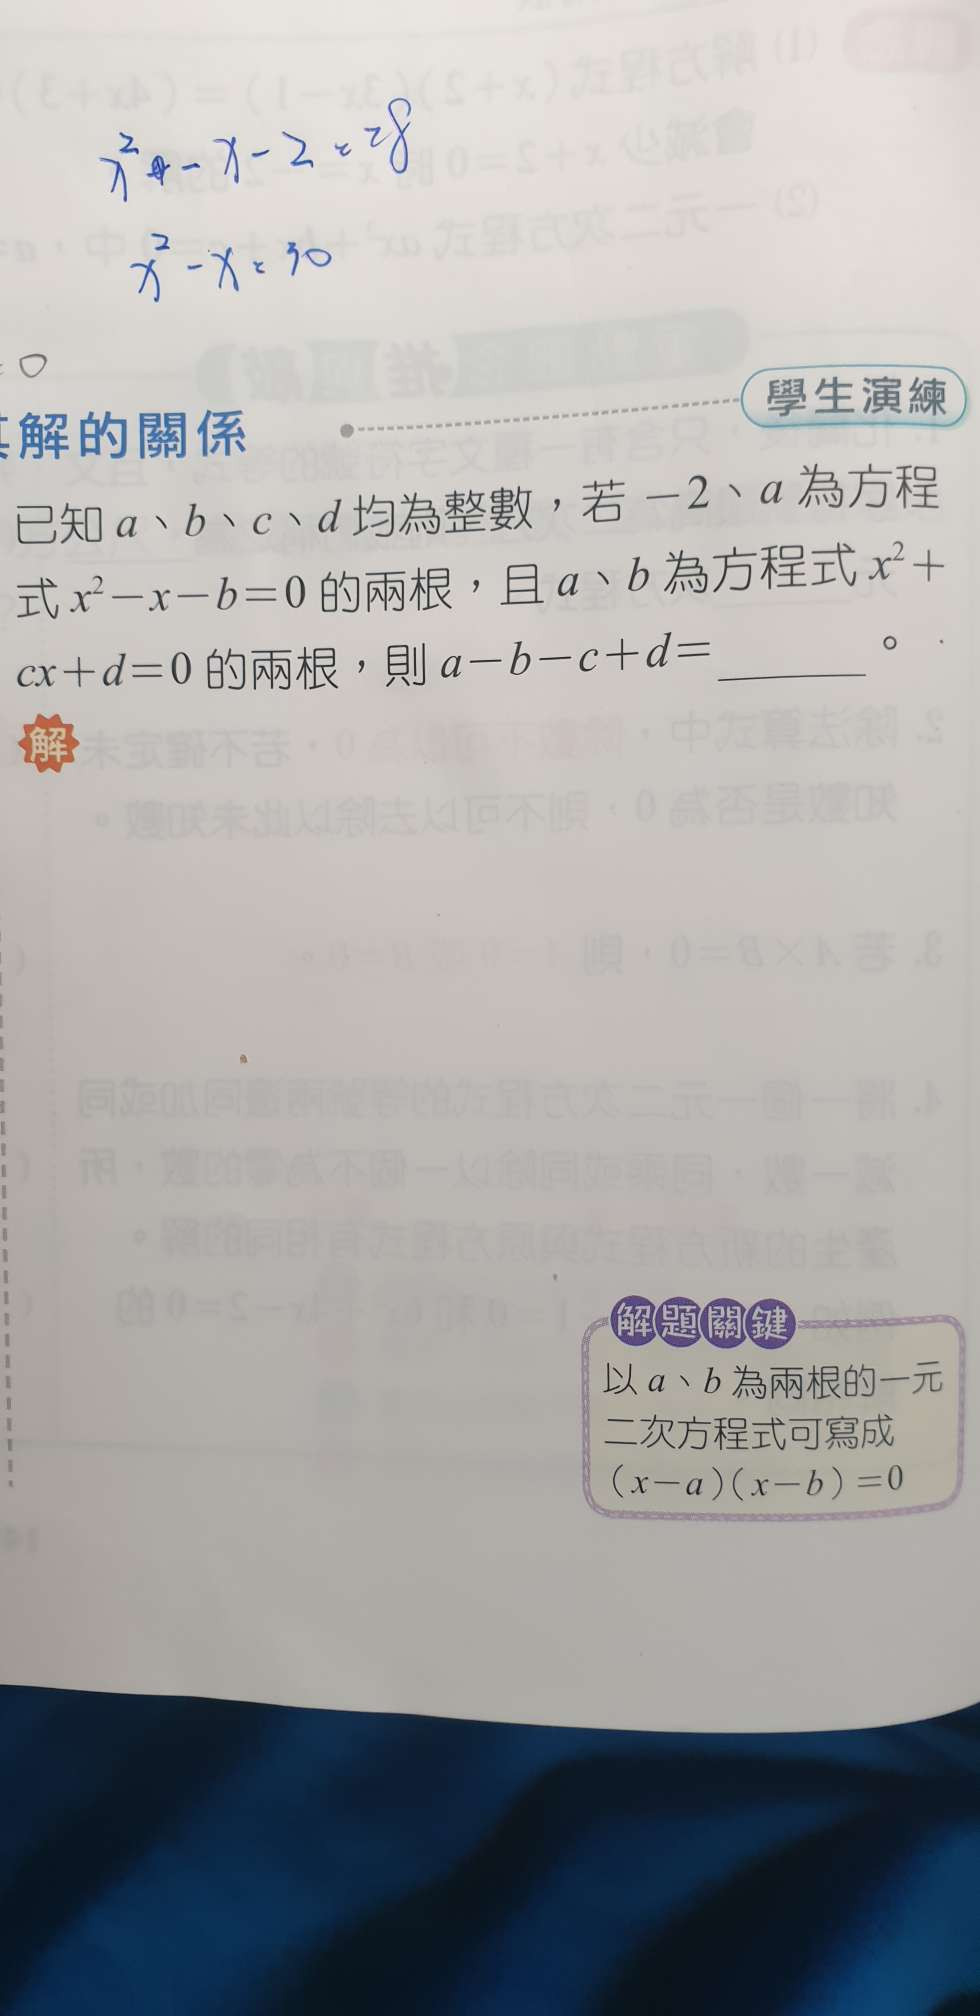 x²-x-2=28
x²-x=30
0
解的關係
學生演練
已知a、b、c、d均為整數，若-2、a為方程
式x²-x-b=0的兩根，且a、b為方程式x²+
cx+d=0的兩根，則a-b-c+d=______。
解
解題關鍵
以a、b為兩根的一元
二次方程式可寫成
(x-a)(x-b)=0